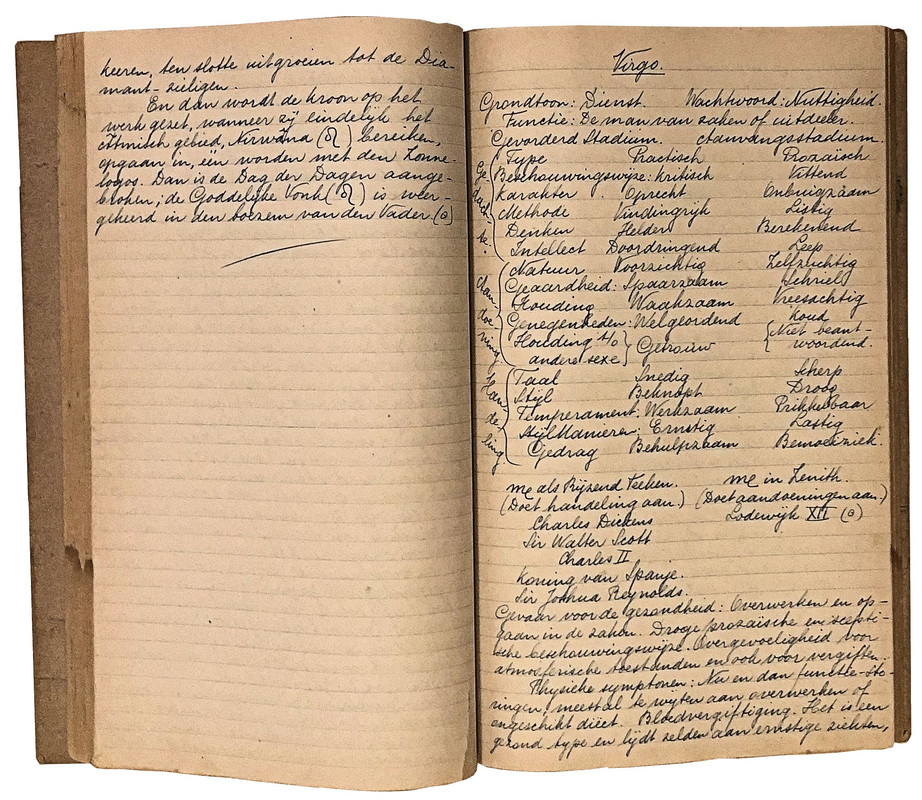 keeren, ten slotte uitgroeien tot de Dia-
mant-zieligen.
En dan wordt de kroon op het
werk gezet, wanneer zij eindelijk het
Atmisch gebied, Nirwâna (♌) bereiken,
opgaan in, één worden met den Zonne-
logos. Dan is de Dag der Dagen aange-
broken; de Goddelijke Vonk (♌) is weer-
gekeerd in den boezem van den Vader. (☉)
Virgo.
Grondtoon: Dienst. Wachtwoord: Nuttigheid.
Functie: De man van zaken of uitdeeler.
Gevorderd Stadium. Aanvangsstadium.
Type Practisch Prozaisch
Beschouwingswijze: Kritisch Vittend
Karakter Oprecht Onbuigzaam
Methode Vindingrijk Listig
Denken Helder Berekenend
Intellect Doordringend Leep
Gedach-
te.
Natuur Voorzichtig Zelfzuchtig
Geaardheid: Spaarzaam Schriel
Houding Waakzaam Vreesachtig
Genegenheden: Welgeordend Koud
Houding t/o andere sexe } Getrouw { Niet beant-
woordend.
Aan-
doe-
ning
Taal Snedig Scherp
Stijl Beknopt Droog
Temperament: Werkzaam Prikkelbaar
Manieren: Ernstig Lastig
Gedrag Behulpzaam Bemoeiziek.
Han-
de-
ling
♍ als Rijzend Teeken. ♍ in Zenith.
(Doet handeling aan.) (Doet aandoeningen aan.)
Charles Dickens Lodewijk XII (☉)
Sir Walter Scott
Charles II
Koning van Spanje.
Sir Joshua Reynolds.
Gevaar voor de gezondheid: Overwerken en op-
gaan in de zaken. Droge prozaïsche en scepti-
sche beschouwingswijze. Overgevoeligheid voor
atmosferische toestanden en ook voor vergiften.
Physieke symptonen: Nu en dan functie-sto-
ringen, meestal te wijten aan overwerken of
ongeschikt diëet. Bloedvergiftiging. Het is een
gezond type en lijdt zelden aan ernstige ziekten,